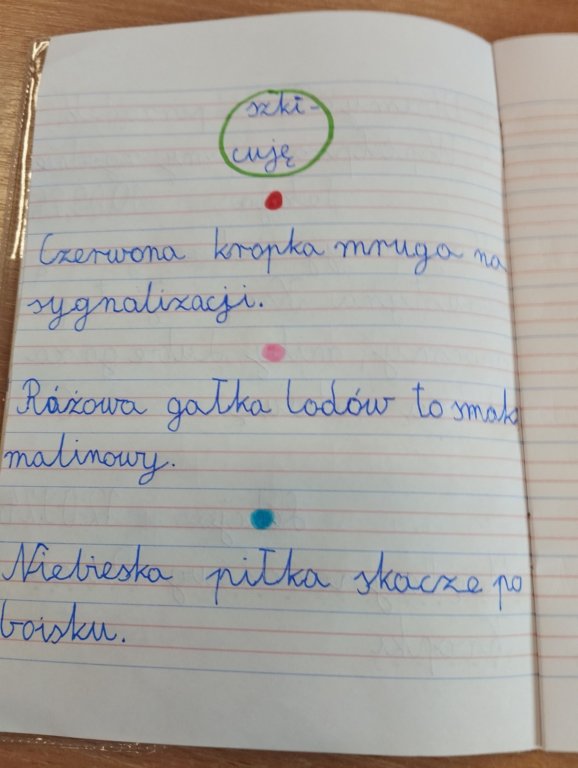 szki-
cuję
Czerwona kropka mruga na
sygnalizacji.
Różowa gałka lodów to smak
malinowy.
Niebieska piłka skacze po
boisku.